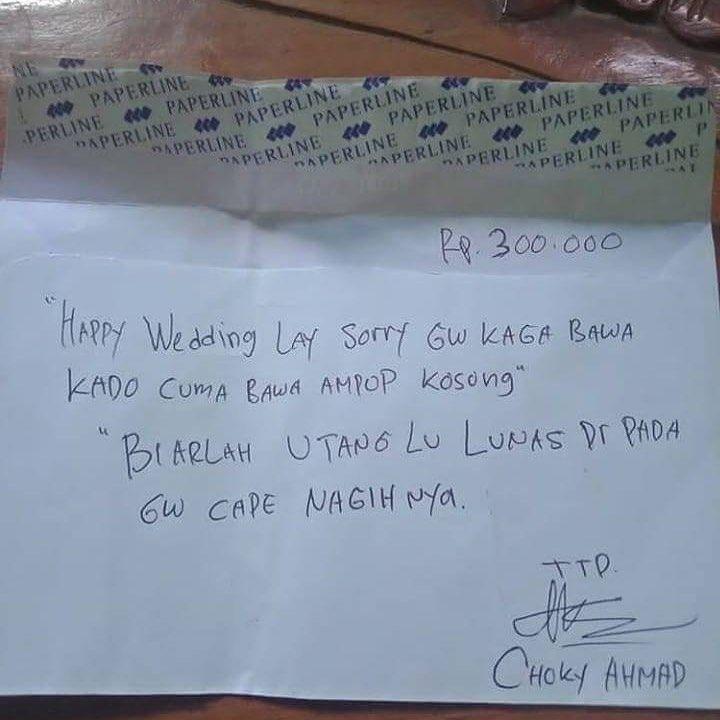 NE
PAPERLINE PAPERLINE PAPERLINE PAPERLINE PAPERLINE PAPERLINE PAPERLINE PAPERLINE PAPERLIN
PERLINE PAPERLINE PAPERLINE PAPERLINE PAPERLINE PAPERLINE PAPERLINE PAPERLINE PAPERLINE
Rp. 300.000
"HAPPY Wedding LAY Sorry GW KAGA BAWA
KADO CUMA BAWA AMPOP Kosong"
"BIARLAH UTANG LU LUNAS DI PADA
GW CAPE NAGIHNYA.
TTD.
CHOKY AHMAD